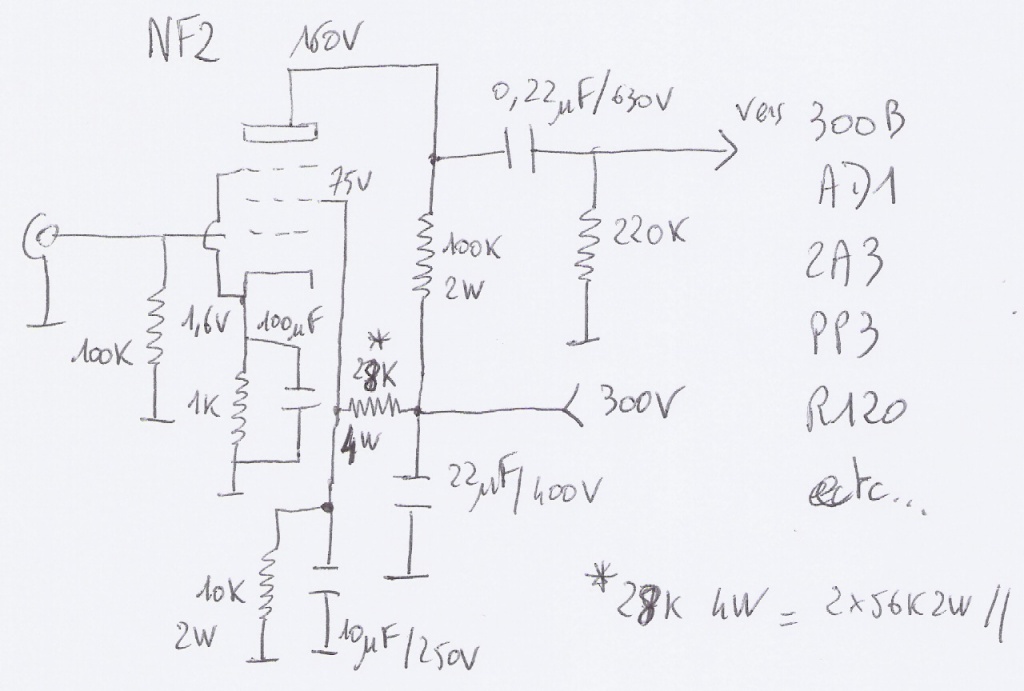 NF2
160V
0,22µF/630V
vers
300B
AD1
2A3
PP3
R120
ectc...
75V
100K
2W
220K
1,6V
100µF
100K
1K
*
28K
4W
300V
22µF/400V
10K
2W
10µF/250V
*28K 4W = 2x56K2W //